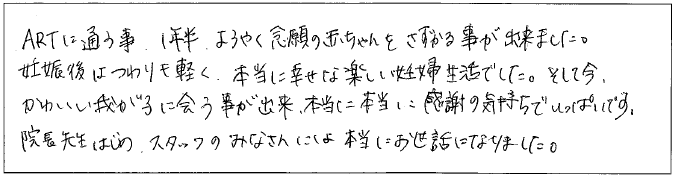 ARTに通う事、1年半、ようやく念願の赤ちゃんをさずかる事が出来ました。
妊娠後はつわりも軽く、本当に幸せな楽しい妊婦生活でした。そして今、
かわいい我が子に会う事が出来、本当に本当に感謝の気持ちでいっぱいです。
院長先生はじめ、スタッフのみなさんには本当にお世話になりました。